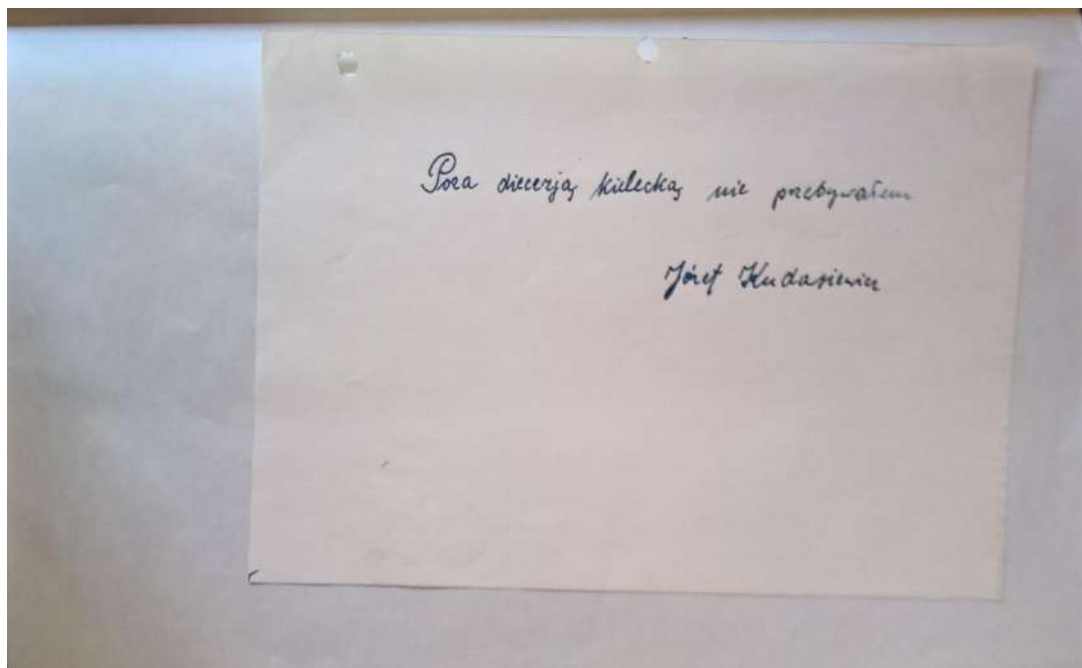 Poza diecezją kielecką nie przebywałem
Józef Kudasiewicz